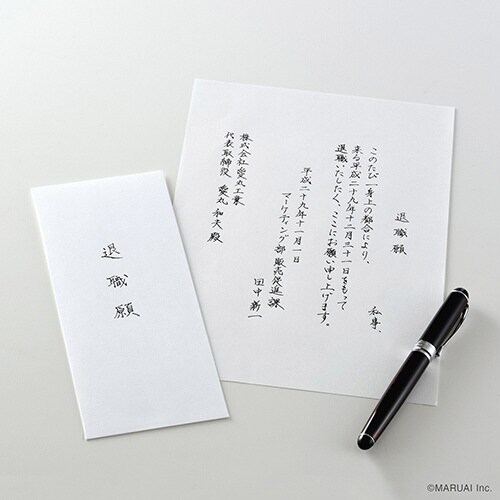 退職願
退職願
私事、
このたび一身上の都合により、
来る平成二十九年十二月三十一日をもって
退職いたしたく、ここにお願い申し上げます。
平成二十九年十一月一日
マーケティング部販売促進課
田中新一
株式会社愛丸工業
代表取締役 愛丸和夫殿
©MARUAI Inc.